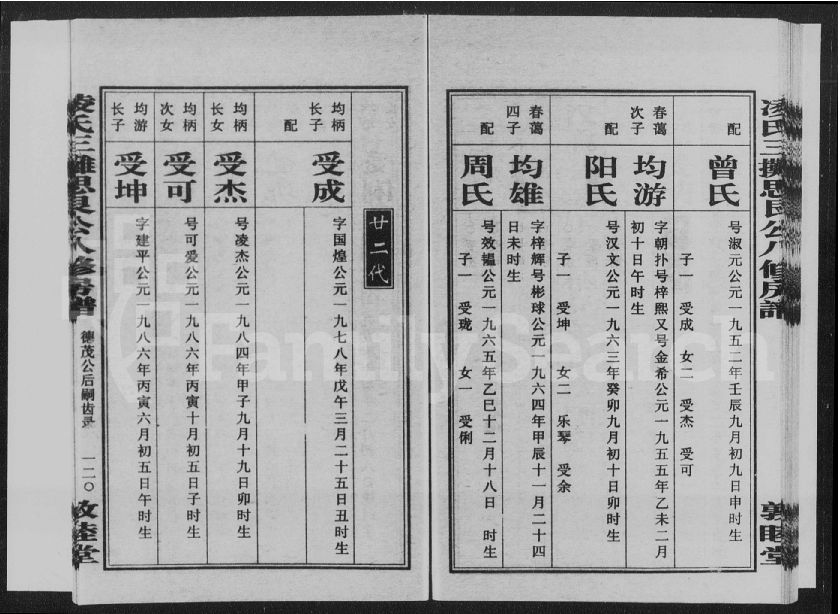 凌氏三摊思良公八修房谱
敦睦堂
配
曾氏
号淑元公元一九五二年壬辰九月初九日申时生
子一 受成 女二 受杰 受可
春蔼
次子
均游
字朝扑号梓熙又号金希公元一九五五年乙未二月
初十日午时生
配
阳氏
号汉文公元一九六三年癸卯九月初十日卯时生
子一 受坤 女二 乐琴 受余
春蔼
四子
均雄
字梓辉号彬球公元一九六四年甲辰十一月二十四
日未时生
配
周氏
号效韫公元一九六五年乙巳十二月十八日 时生
子一 受珑 女一 受俐
廿二代
均柄
长子
受成
字国煌公元一九七八年戊午三月二十五日丑时生
配
均柄
长女
受杰
号凌杰公元一九八四年甲子九月十九日卯时生
均柄
次女
受可
号可爱公元一九八六年丙寅十月初五日子时生
均游
长子
受坤
字建平公元一九八六年丙寅六月初五日午时生
凌氏三摊思良公八修房谱
德茂公后嗣齿录
一二〇
敦睦堂
FamilySearch